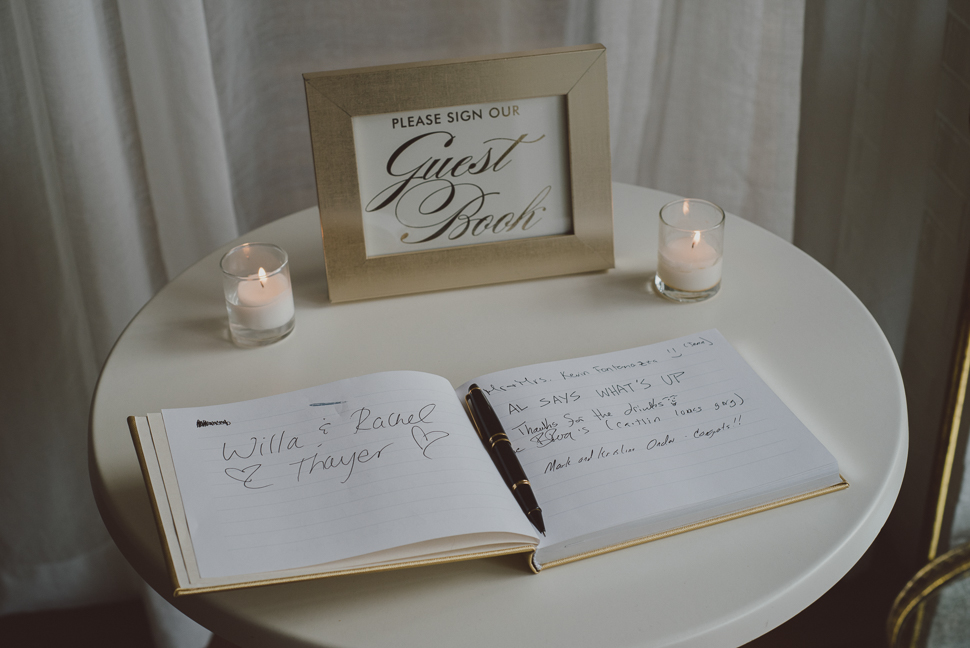 PLEASE SIGN OUR
Guest
Book
Willa & Rachel
Thayer
Mr + Mrs. Kevin
AL SAYS WHAT'S UP
Thanks for the drinks
(Caitlin loves gary)
Mark and Kristin Congrats!!